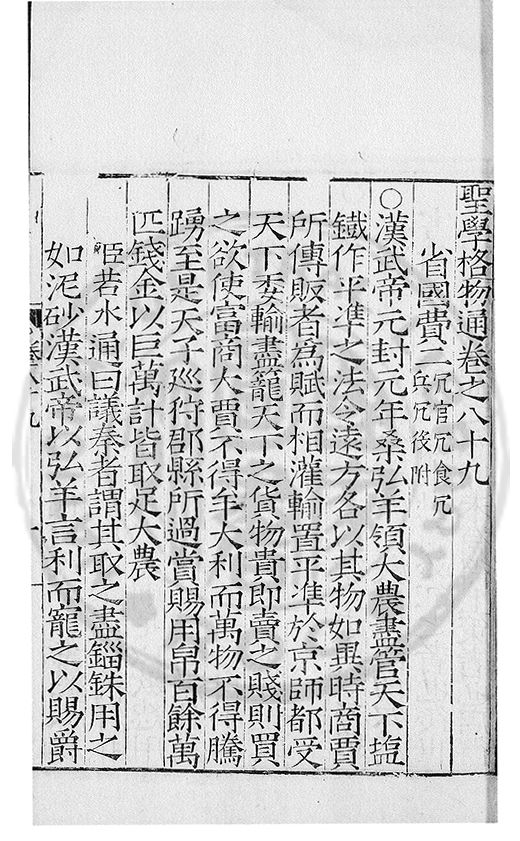 聖學格物通卷之八十九
省國費二冗官冗食冗
兵冗役附
○漢武帝元封元年桑弘羊領大農盡管天下塩
鐵作平準之法令遠方各以其物如異時商賈
所傳販者為賦而相灌輸置平準於京師都受
天下委輸盡籠天下之貨物貴即賣之賤則買
之欲使富商大賈不得牟大利而萬物不得騰
踴至是天子廵狩郡縣所過賞賜用帛百餘萬
匹錢金以巨萬計皆取足大農
臣若水通曰議秦者謂其取之盡錙銖用之
如泥砂漢武帝以弘羊言利而寵之以賜爵